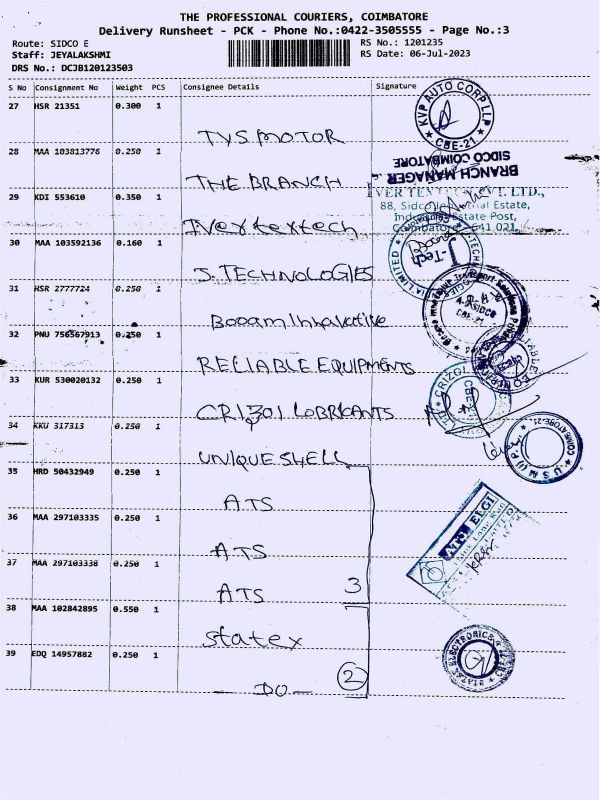 THE PROFESSIONAL COURIERS, COIMBATORE
Delivery Runsheet - PCK - Phone No.:0422-3505555 - Page No.:3
Route: SIDCO E
RS No.: 1201235
Staff: JEYALAKSHMI
RS Date: 06-Jul-2023
DRS No.: DCJB120123503
S No Consignment No Weight PCS Consignee Details Signature
27 HSR 21351 0.300 1
TVS MOTOR
KVP AUTO CORP LLP
CBE-21
28 MAA 103813776 0.250 1
THE BRANCH
BRANCH MANAGER
SIDCO COIMBATORE
29 KDI 553610 0.350 1
Ivertextech
88, Sidco
Estate,
Estate Post,
641 021
30 MAA 103592136 0.160 1
J. TECHNOLOGIES
J-Tech
31 HSR 2777724 0.250 1
Booam Innavative
SIDCO
CBE-21
32 PNU 756567913 0.250 1
RELIABLE EQUIPMENTS
33 KUR 530020132 0.250 1
CRIZOI LUBRICANTS
CRIZOL
34 KKU 317313 0.250 1
UNIQUE SHELL
COIMBATORE-21
35 HRD 50432949 0.250 1
ATS
36 MAA 297103335 0.250 1
ATS
ELGI
37 MAA 297103338 0.250 1
ATS
3
38 MAA 102842895 0.550 1
Statex
ELECTRONICS
39 EDQ 14957882 0.250 1
— DO —
2